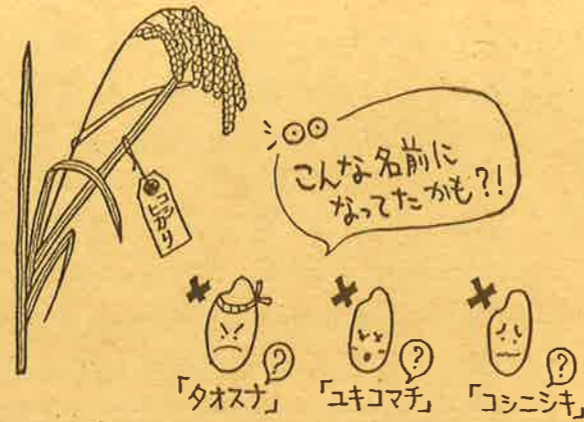 コシヒカリ
こんな名前に
なってたかも?!
?
「タオスナ」
?
「ユキコマチ」
?
「コシニシキ」